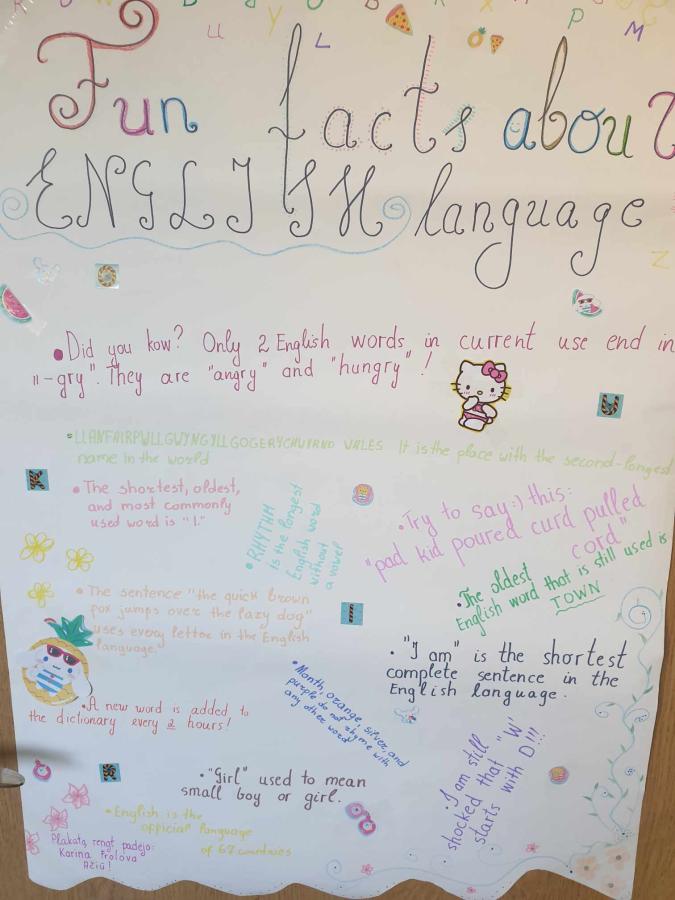 Fun facts about
ENGLISH language
• Did you kow? Only 2 English words in current use end in
"-gry". They are "angry" and "hungry"!
• LLANFAIRPWLLGWYNGYLLGOGERYCHWYRND WALES It is the place with the second-longest
name in the world
• The shortest, oldest,
and most commonly
used word is "I."
• RHYTHM
is the longest
English word
without
a vowel
• Try to say:) this:
"pad kid poured curd pulled
cord"
• The oldest
English word that is still used is
TOWN
• The sentence "the quick brown
fox jumps over the lazy dog"
uses every letter in the English
language.
• "I am" is the shortest
complete sentence in the
English language.
• A new word is added to
the dictionary every 2 hours!
• Month, orange, silver, and
purple do not rhyme with
any other word
• I am still
shocked that "W"
starts with D!!!
• "Girl" used to mean
small boy or girl.
• English is the
official language
of 67 countries
Plakatą rengt padėjo:
Karina Frolova
Ačiū!